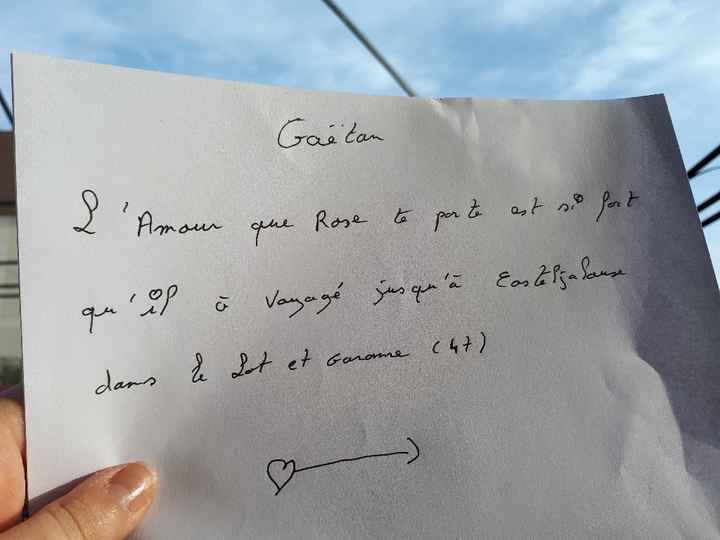 Gaëtan
L'Amour que Rose te porte est si fort
qu'il à voyagé jusqu'à Casteljaloux
dans le Lot et Garonne (47)